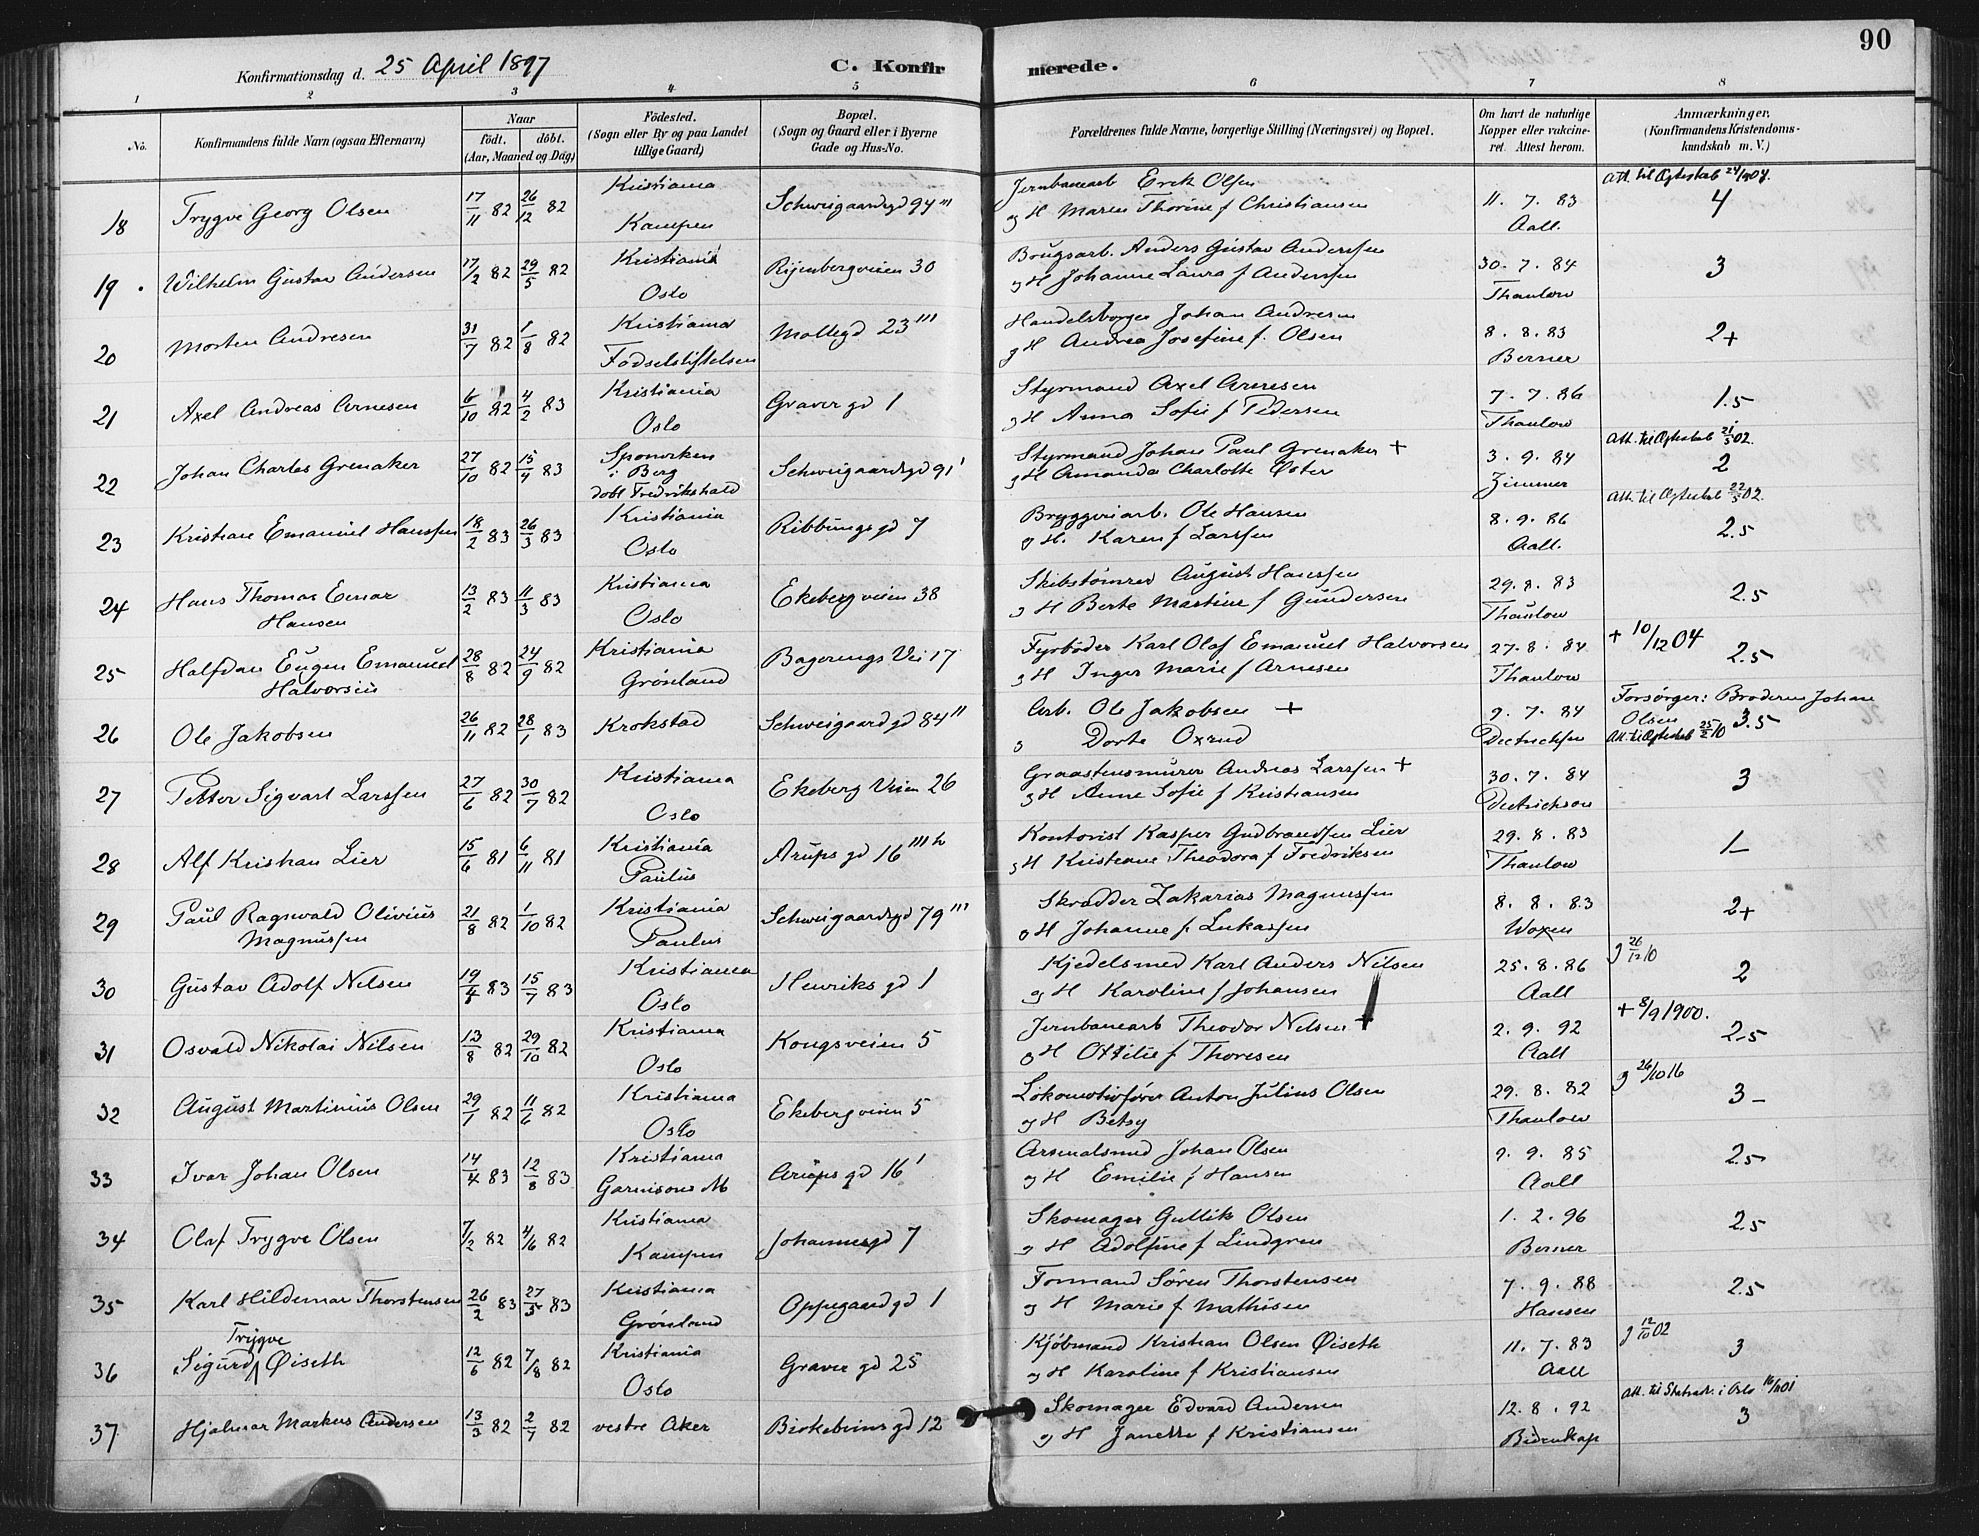 90
Konfirmationsdag d. 25 April 1897 C. Konfirmerede.
1 2 3 4 5 6 7 8
No. Konfirmandens fulde Navn (ogsaa Efternavn) Naar født. døbt. (Aar, Maaned og Dag) Fødested. (Sogn eller By og paa Landet tillige Gaard) Bopæl. (Sogn og Gaard eller i Byerne Gade og Hus-No. Forældrenes fulde Navne, borgerlige Stilling (Næringsvei) og Bopæl. Om havt de naturlige Kopper eller vakcineret. Attest herom. Anmærkninger. (Konfirmandens Kristendomskundskab m. V.)
18 Trygve Georg Olsen 17/11 82 26/12 82 Kristiania Kampen Schweigaardsgd 94''' Jernbanearb Erik Olsen
og H Maren Thorine f Christiansen 11. 7. 83 Aall. Att. til Ægteskab 24/1 904. 4
19 Wilhelm Gustav Andersen 17/2 82 29/5 82 Kristiania Oslo Ryenbergveien 30 Brugsarb. Anders Gustav Anderssen
og H Johanne Laura f Anderssen 30. 7. 84 Thaulow 3
20 Morten Andresen 31/7 82 1/8 82 Kristiania Fødselstiftelsen Møllegd 23''' Handelsborger Johan Andresen
og H Andrea Josefine f. Olsen 8. 8. 83 Berner 2+
21 Axel Andreas Arnesen 6/10 82 4/2 83 Kristiania Oslo Graver gd 1 Styrmand Axel Arnesen
og H Anna Sofie f Pedersen 7. 7. 86 Thaulow 1.5
22 Johan Charles Grenaker 27/10 82 15/4 83 Sponviken i Berg døbt Fredrikshald Schweigaardsgd 91' Styrmand Johan Paul Grenaker +
og H Amanda Charlotte Øster 3. 9. 84 Zimmer Att. til Ægteskab 21/5 02. 2
23 Kristian Emanuel Hanssen 18/2 83 26/3 83 Kristiania Oslo Ribbungs gd 7 Bryggeriarb. Ole Hansen
og H. Karen f Larssen 8. 9. 86 Aall. Att. til Ægteskab 22/5 02. 2.5
24 Hans Thomas Einar Hansen 13/2 83 11/3 83 Kristiania Oslo Ekeberg veien 38 Skibstømrer August Hanssen
og H Berte Martine f Gundersen 29. 8. 83 Thaulow 2.5
25 Halfdan Eugen Emanuel Halvorsen 28/8 82 24/9 82 Kristiania Grønland Bagerengs Vei 17 Fyrbøder Karl Olaf Emanuel Halvorsen
og H Inger Marie f Arnesen 27. 8. 84 Thaulow + 10/12 04 2.5
26 Ole Jakobsen 26/11 82 28/1 83 Krokstad Schweigaard gd 84'' Arb. Ole Jakobsen +
og Dorte Oxrud 9. 7. 84 Dietrichsen Forsørger: Broderen Johan Olsen Att. til Ægteskab 25/2 10 3.5
27 Petter Sigvart Larssen 27/6 82 30/7 82 Kristiania Oslo Ekeberg Veien 26 Graastensmurer Andreas Larssen +
og H Anne Sofie f Kristiansen 30. 7. 84 Dietrichson 3
28 Alf Kristian Lier 15/6 81 6/11 81 Kristiania Paulus Arups gd 16''' h Kontorist Kasper Gudbrandsen Lier
og H Kristiane Theodora f Fredriksen 29. 8. 83 Thaulow 1–
29 Paul Ragnvald Olivius Magnussen 21/8 82 1/10 82 Kristiania Paulus Schweigaardsgd 79''' Skrædder Zakarias Magnussen
og H Johanne f Lukassen 8. 8. 83 Woxen 2+
30 Gustav Adolf Nilsen 19/4 83 15/7 83 Kristiania Oslo Henriks gd 1 Kjedelsmed Karl Anders Nilsen
og H Karoline f Johansen 25. 8. 86 Aall g 26/12 10 2
31 Osvald Nikolai Nilsen 13/8 82 29/10 82 Kristiania Oslo Kongsveien 5 Jernbanearb Theodor Nilsen +
og H Ottilie f Thoresen 2. 9. 92 Aall + 8/9 1900. 2.5
32 August Martinius Olsen 29/1 82 11/6 82 Kristiania Oslo Ekeberg veien 5 Lokomotivfører Anton Julius Olsen
og H Betsy 29. 8. 82 Thaulow g 26/10 16 3–
33 Ivar Johan Olsen 14/4 83 12/8 83 Kristiania Garnisons M Arups gd 16' Arsenalsmed Johan Olsen
og H Emilie f Hansen 9. 9. 85 Aall 2.5
34 Olaf Trygve Olsen 7/2 82 4/6 82 Kristiania Kampen Johannesgd 7 Skomager Gullik Olsen
og H Adolfine f Lindgren 1. 2. 96 Berner 2.5
35 Karl Hildemar Thorstensen 26/2 83 27/5 83 Kristiania Grønland Oppegaard gd 1 Formand Søren Thorstensen
og H Marie f Mathisen 7. 9. 88 Hansen 2.5
36 Sigurd Trygve Øiseth 12/6 82 7/8 82 Kristiania Oslo Graver gd 25 Kjøbmand Kristian Olsen Øiseth
og H Karoline f Kristiansen 11. 7. 83 Aall g 12/10 02 3
37 Hjalmar Markus Andersen 13/3 82 2/7 82 vestre Aker Birkebeiner gd 12 Skomager Edvard Andersen
og H Janette f Kristiansen 12. 8. 92 Bidenkap Att. til i Oslo 3